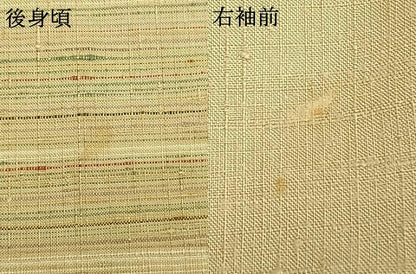 後身頃
右袖前